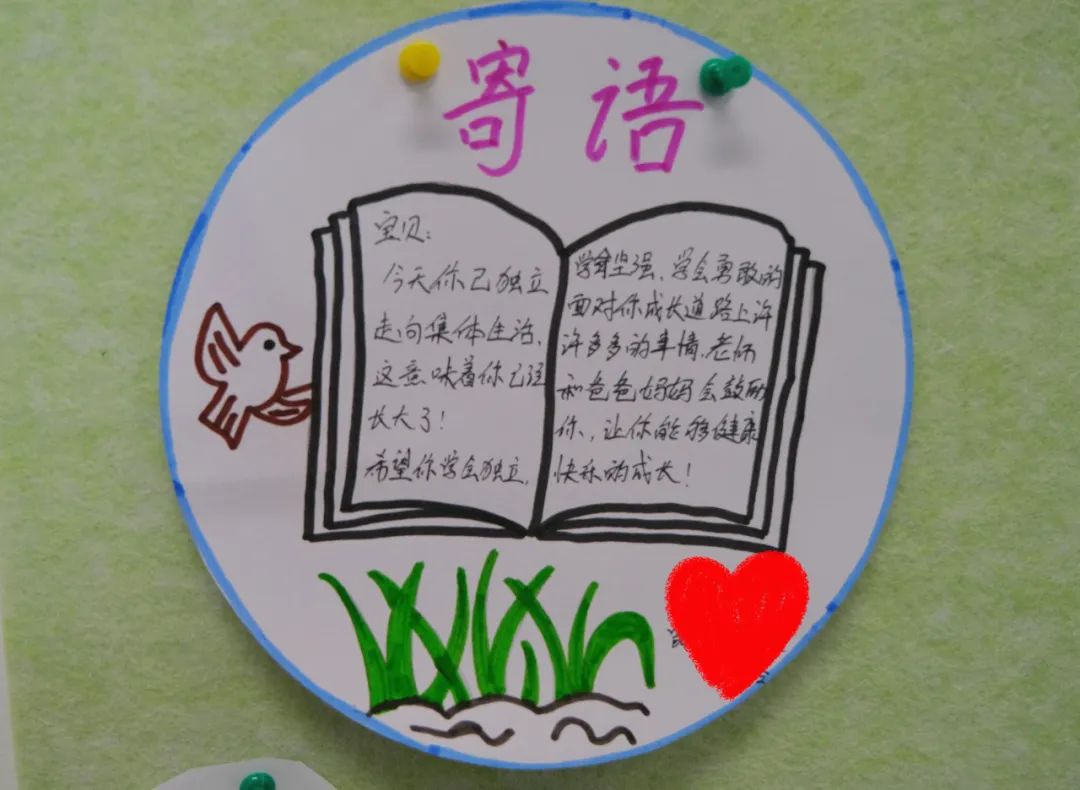 寄语
宝贝:
今天你已独立
走向集体生活,
这意味着你已经
长大了!
希望你学会独立,
学会坚强,学会勇敢的
面对你成长道路上许
许多多的事情,老师
和爸爸妈妈会鼓励
你,让你能够健康
快乐的成长!